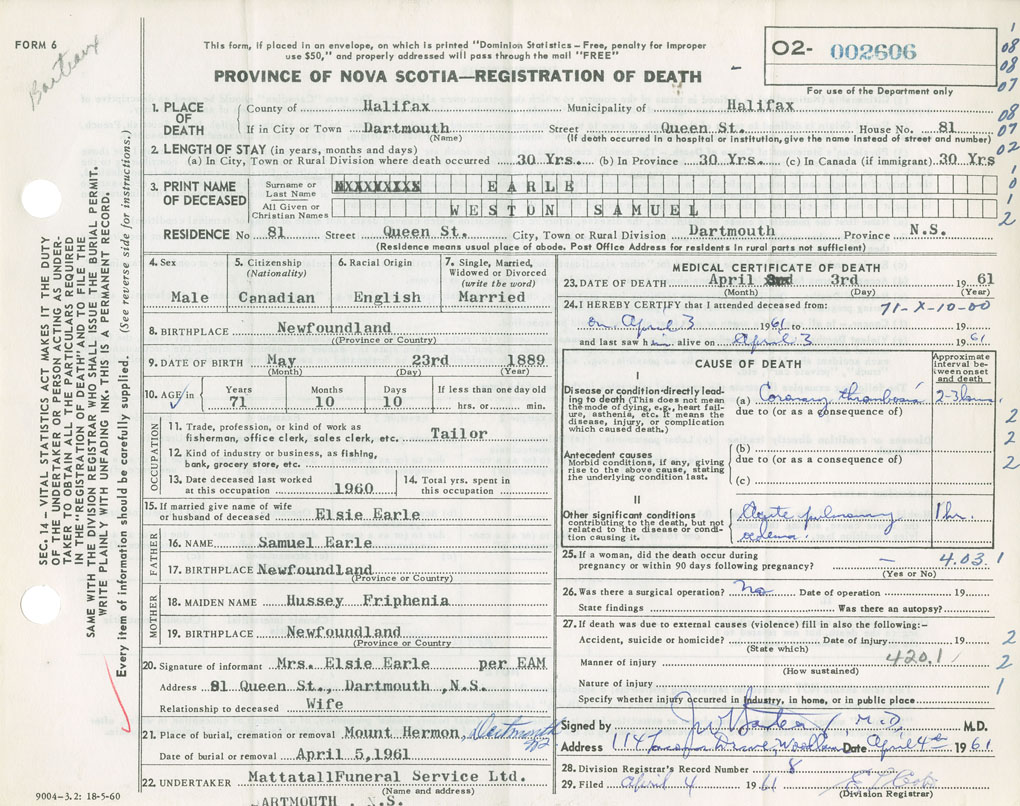 FORM 6
Barteaux
This form, if placed in an envelope, on which is printed "Dominion Statistics – Free, penalty for improper
use $50," and properly addressed will pass through the mail "FREE"
PROVINCE OF NOVA SCOTIA—REGISTRATION OF DEATH
O2- 002606
For use of the Department only
1. PLACE OF DEATH County of Halifax Municipality of Halifax
If in City or Town Dartmouth Street Queen St. House No. 81
(Name) (If death occurred in a hospital or institution, give the name instead of street and number)
2. LENGTH OF STAY (in years, months and days)
(a) In City, Town or Rural Division where death occurred 30 Yrs. (b) In Province 30 Yrs. (c) In Canada (if immigrant) 30 Yrs
3. PRINT NAME OF DECEASED Surname or Last Name EARLE
All Given or Christian Names WESTON SAMUEL
RESIDENCE No 81 Street Queen St. City, Town or Rural Division Dartmouth Province N.S.
(Residence means usual place of abode. Post Office Address for residents in rural parts not sufficient)
4. Sex Male
5. Citizenship (Nationality) Canadian
6. Racial Origin English
7. Single, Married, Widowed or Divorced (write the word) Married
8. BIRTHPLACE Newfoundland
((Province or Country)
9. DATE OF BIRTH May 23rd 1889
(Month) (Day) (Year)
10. AGE in Years 71 Months 10 Days 10 If less than one day old hrs. or min.
OCCUPATION
11. Trade, profession, or kind of work as fisherman, office clerk, sales clerk, etc. Tailor
12. Kind of industry or business, as fishing, bank, grocery store, etc.
13. Date deceased last worked at this occupation 1960
14. Total yrs. spent in this occupation
15. If married give name of wife or husband of deceased Elsie Earle
FATHER
16. NAME Samuel Earle
17. BIRTHPLACE Newfoundland
(Province or Country)
MOTHER
18. MAIDEN NAME Hussey Friphenia
19. BIRTHPLACE Newfoundland
(Province or Country)
20. Signature of informant Mrs. Elsie Earle per EAM
Address 81 Queen St., Dartmouth ,N.S.
Relationship to deceased Wife
21. Place of burial, cremation or removal Mount Hermon, Dartmouth NS
Date of burial or removal April 5,1961
22. UNDERTAKER MattatallFuneral Service Ltd.
(Name and address)
DARTMOUTH , N.S.
9004-3.2: 18-5-60
MEDICAL CERTIFICATE OF DEATH
23. DATE OF DEATH April 3rd 1961
(Month) (Day) (Year)
24. I HEREBY CERTIFY that I attended deceased from: 71-X-10-00
on April 3 1961 to 19
and last saw him alive on April 3 1961
CAUSE OF DEATH
Approximate interval between onset and death
I
Disease or condition directly leading to death (This does not mean the mode of dying, e.g., heart failure, asthenia, etc. It means the disease, injury, or complication which caused death.)
(a) Coronary thrombosis 2-3 hrs.
due to (or as a consequence of)
Antecedent causes
Morbid conditions, if any, giving rise to the above cause, stating the underlying condition last.
(b)
due to (or as a consequence of)
(c)
II
Other significant conditions contributing to the death, but not related to the disease or condition causing it.
Acute pulmonary oedema 1 hr.
25. If a woman, did the death occur during pregnancy or within 90 days following pregnancy? — 4.03.1
(Yes or No)
26. Was there a surgical operation? No Date of operation 19
State findings Was there an autopsy?
27. If death was due to external causes (violence) fill in also the following:–
Accident, suicide or homicide? Date of injury 19
(State which)
Manner of injury 420.1
(How sustained)
Nature of injury
Specify whether injury occurred in Industry, in home, or in public place
Signed by M.D. M.D.
Address 114 Drive, Date April 4th 1961
28. Division Registrar's Record Number 8
29. Filed April 4 1961
(Division Registrar)
SEC. 14 – VITAL STATISTICS ACT MAKES IT THE DUTY
OF THE UNDERTAKER OR PERSON ACTING AS UNDER-
TAKER TO OBTAIN ALL THE PARTICULARS REQUIRED
IN THE "REGISTRATION OF DEATH" AND TO FILE THE
SAME WITH THE DIVISION REGISTRAR WHO SHALL ISSUE THE BURIAL PERMIT.
WRITE PLAINLY WITH UNFADING INK. THIS IS A PERMANENT RECORD.
Every item of information should be carefully supplied. (See reverse side for instructions.)
1
08
08
07
08
07
02
1
0
1
2
2
2
2
1
2
2
1